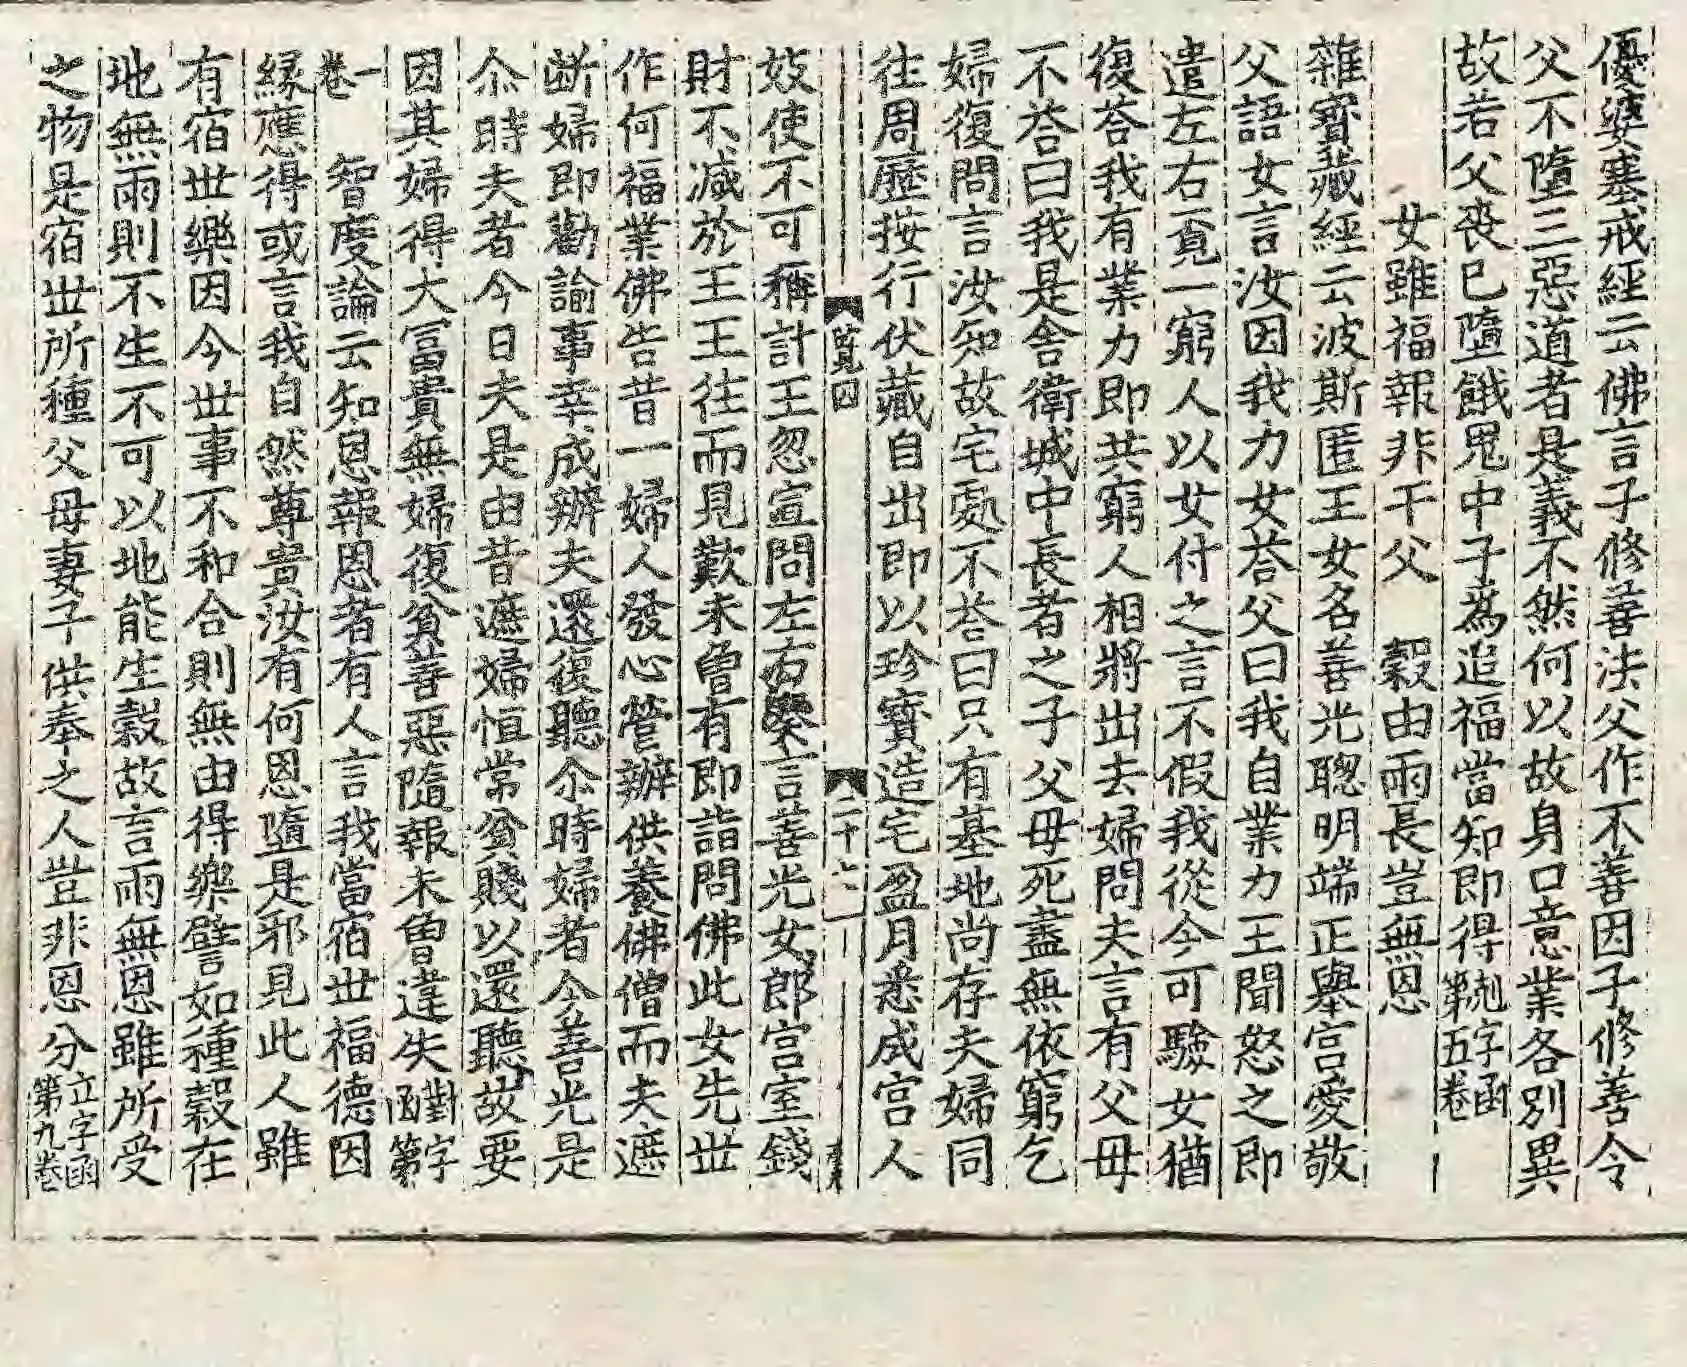 優婆塞戒經云佛言子修善法父作不善因子修善令
父不墮三惡道者是義不然何以故身口意業各別異
故若父喪已墮餓鬼中子爲追福當知即得尅字函第五卷
女雖福報非干父　穀由雨長豈無恩
雜寶藏經云波斯匿王女名善光聰明端正舉宮愛敬
父語女言汝因我力女荅父曰我自業力王聞怒之即
遣左右覔一窮人以女付之言不假我從今可驗女猶
復荅我有業力即共窮人相將出去婦問夫言有父母
不荅曰我是舍衛城中長者之子父母死盡無依窮乞
婦復問言汝知故宅處不荅曰只有基地尚存夫婦同
往周歷按行伏藏自出即以珍寶造宅盈月悉成宮人
二十六
妓使不可稱計王忽宣問左右癸言善光女郎宮室錢
財不減於王王往而見歎未曾有即詣問佛此女先世
作何福業佛告昔一婦人發心營辦供養佛僧而夫遮
断婦即勸諭事幸成辦夫還復聽尒時婦者今善光是
尒時夫者今日夫是由昔遮婦恒常貧賤以還聽故要
因其婦得大冨貴無婦復貧善惡隨報未曾違失對字函第
一卷　智度論云知恩報恩者有人言我當宿世福德因
緣應得或言我自然尊貴汝有何恩墮是邪見此人雖
有宿世樂因今世事不和合則無由得樂譬如種穀在
地無雨則不生不可以地能生穀故言雨無恩雖所受
之物是宿世所種父母妻子供奉之人豈非恩分立字函第九卷